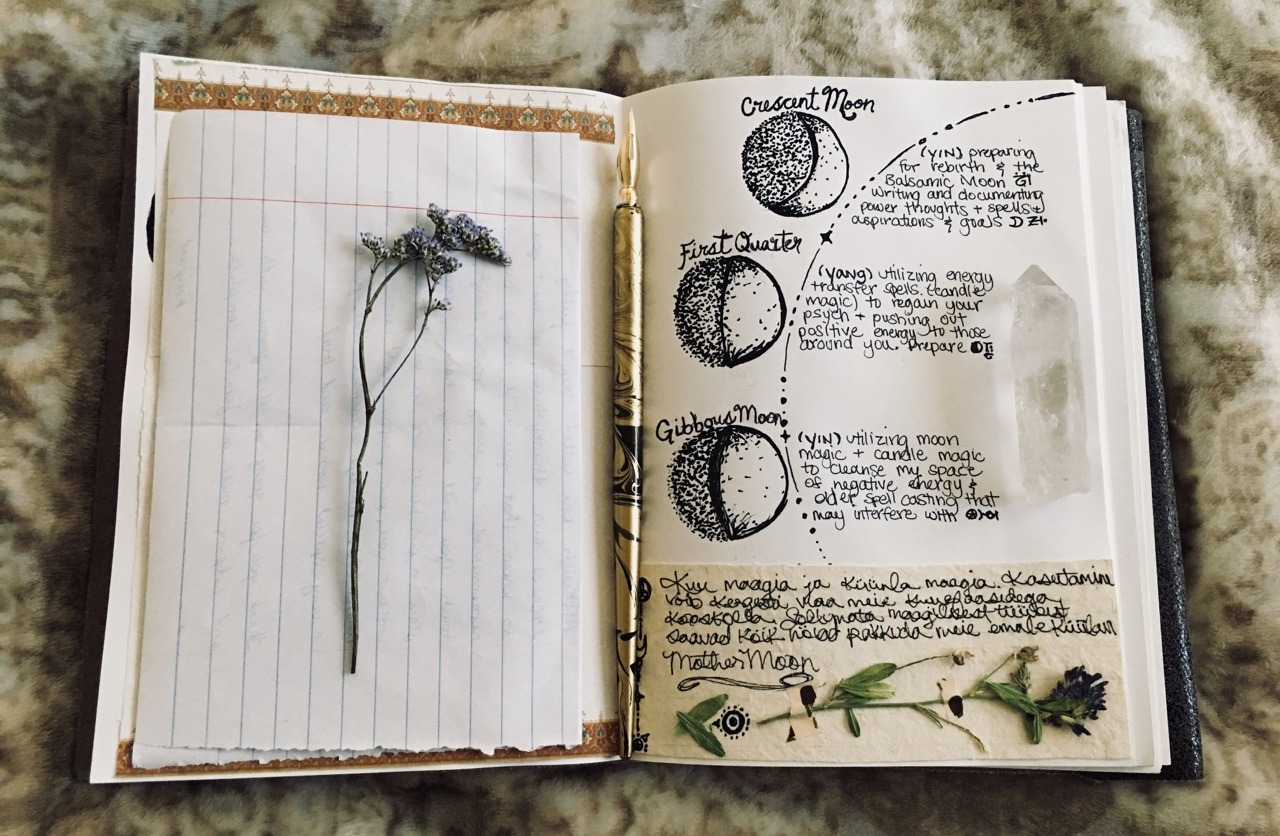 Crescent Moon
(YIN) preparing
for rebirth & the
Balsamic Moon
writing and documenting
power thoughts + spells +
aspirations & goals
First Quarter
(Yang) utilizing energy
transfer spells. (candle
magic) to regain your
psych + pushing out
positive energy to those
around you. Prepare
Gibbous Moon
(YIN) utilizing moon
magic + candle magic
to cleanse my space
of negative energy &
older spell casting that
may interfere with
Kuu maagia ja Küünla maagia. Kasutamine
võib kergesti viia meie kuufaasidega
kooskõla. Sõltumata maagilisest tüübist
saavad kõik nõiad pakkuda meie emale
Mother Moon